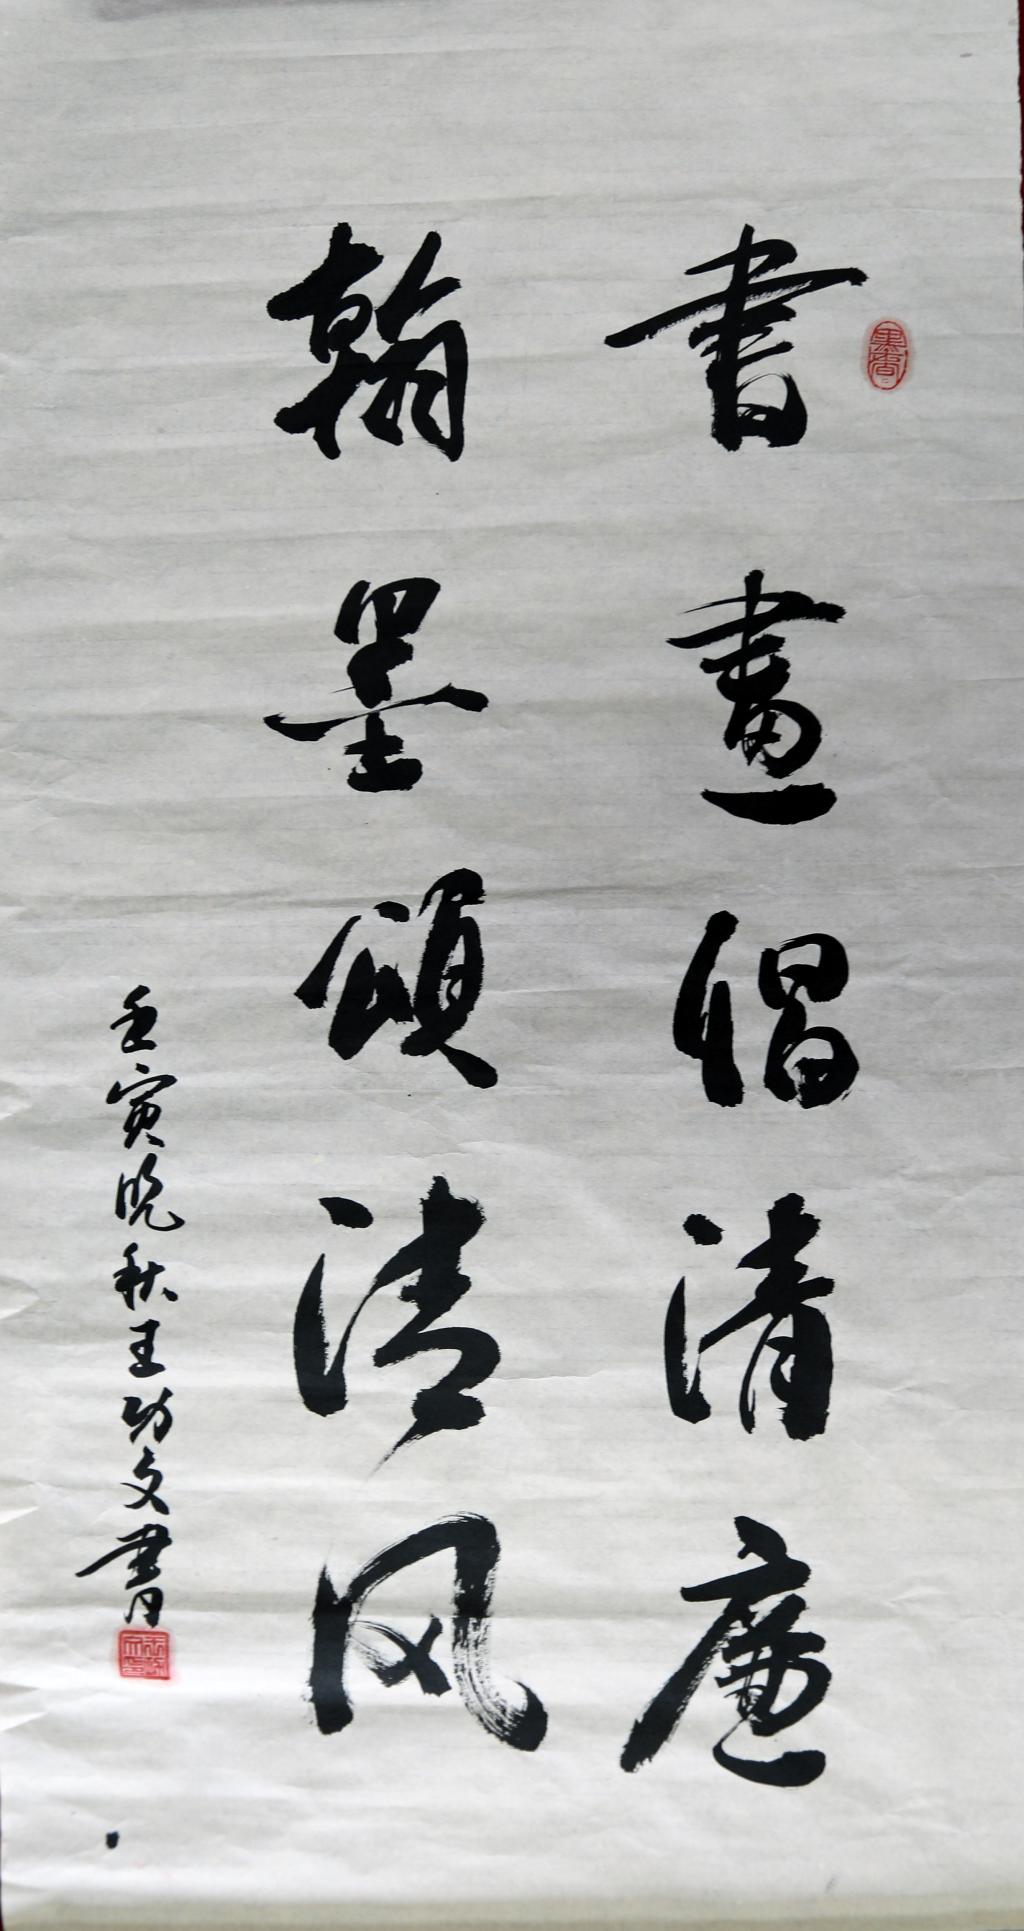 書畫倡清廉
翰墨頌清风
壬寅晚秋王功文書
墨香